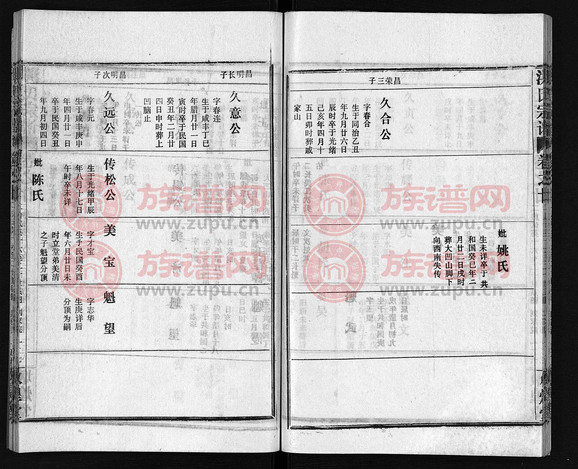 昌荣三子
久合公
字春合
生于同治乙丑
年九月廿六日
辰时卒于光绪
己亥年四月十
五日卯时葬戚
家山
妣姚氏
生未详卒于共
和国癸巳年二
月廿二日戌时
葬大凹山脚下
向西南失传
昌明长子
久意公
字春连
生于咸丰丁巳
年腊月廿一日
寅时卒于民国
癸丑年二月廿
四日申时葬上
凹脑止
昌明次子
久远公
字春元
生于咸丰庚申
年四月廿一日
卒于民国癸酉
年九月初四日
妣陈氏
传松公
生于光绪甲辰
年八月十七日
午时卒未详
美宝
字才宝
生于民国癸酉
年六月廿日未
时立堂弟美清
之子魁望分顶
魁望
字志华
生庚详后
分顶为嗣
族谱网
www.zupu.cn